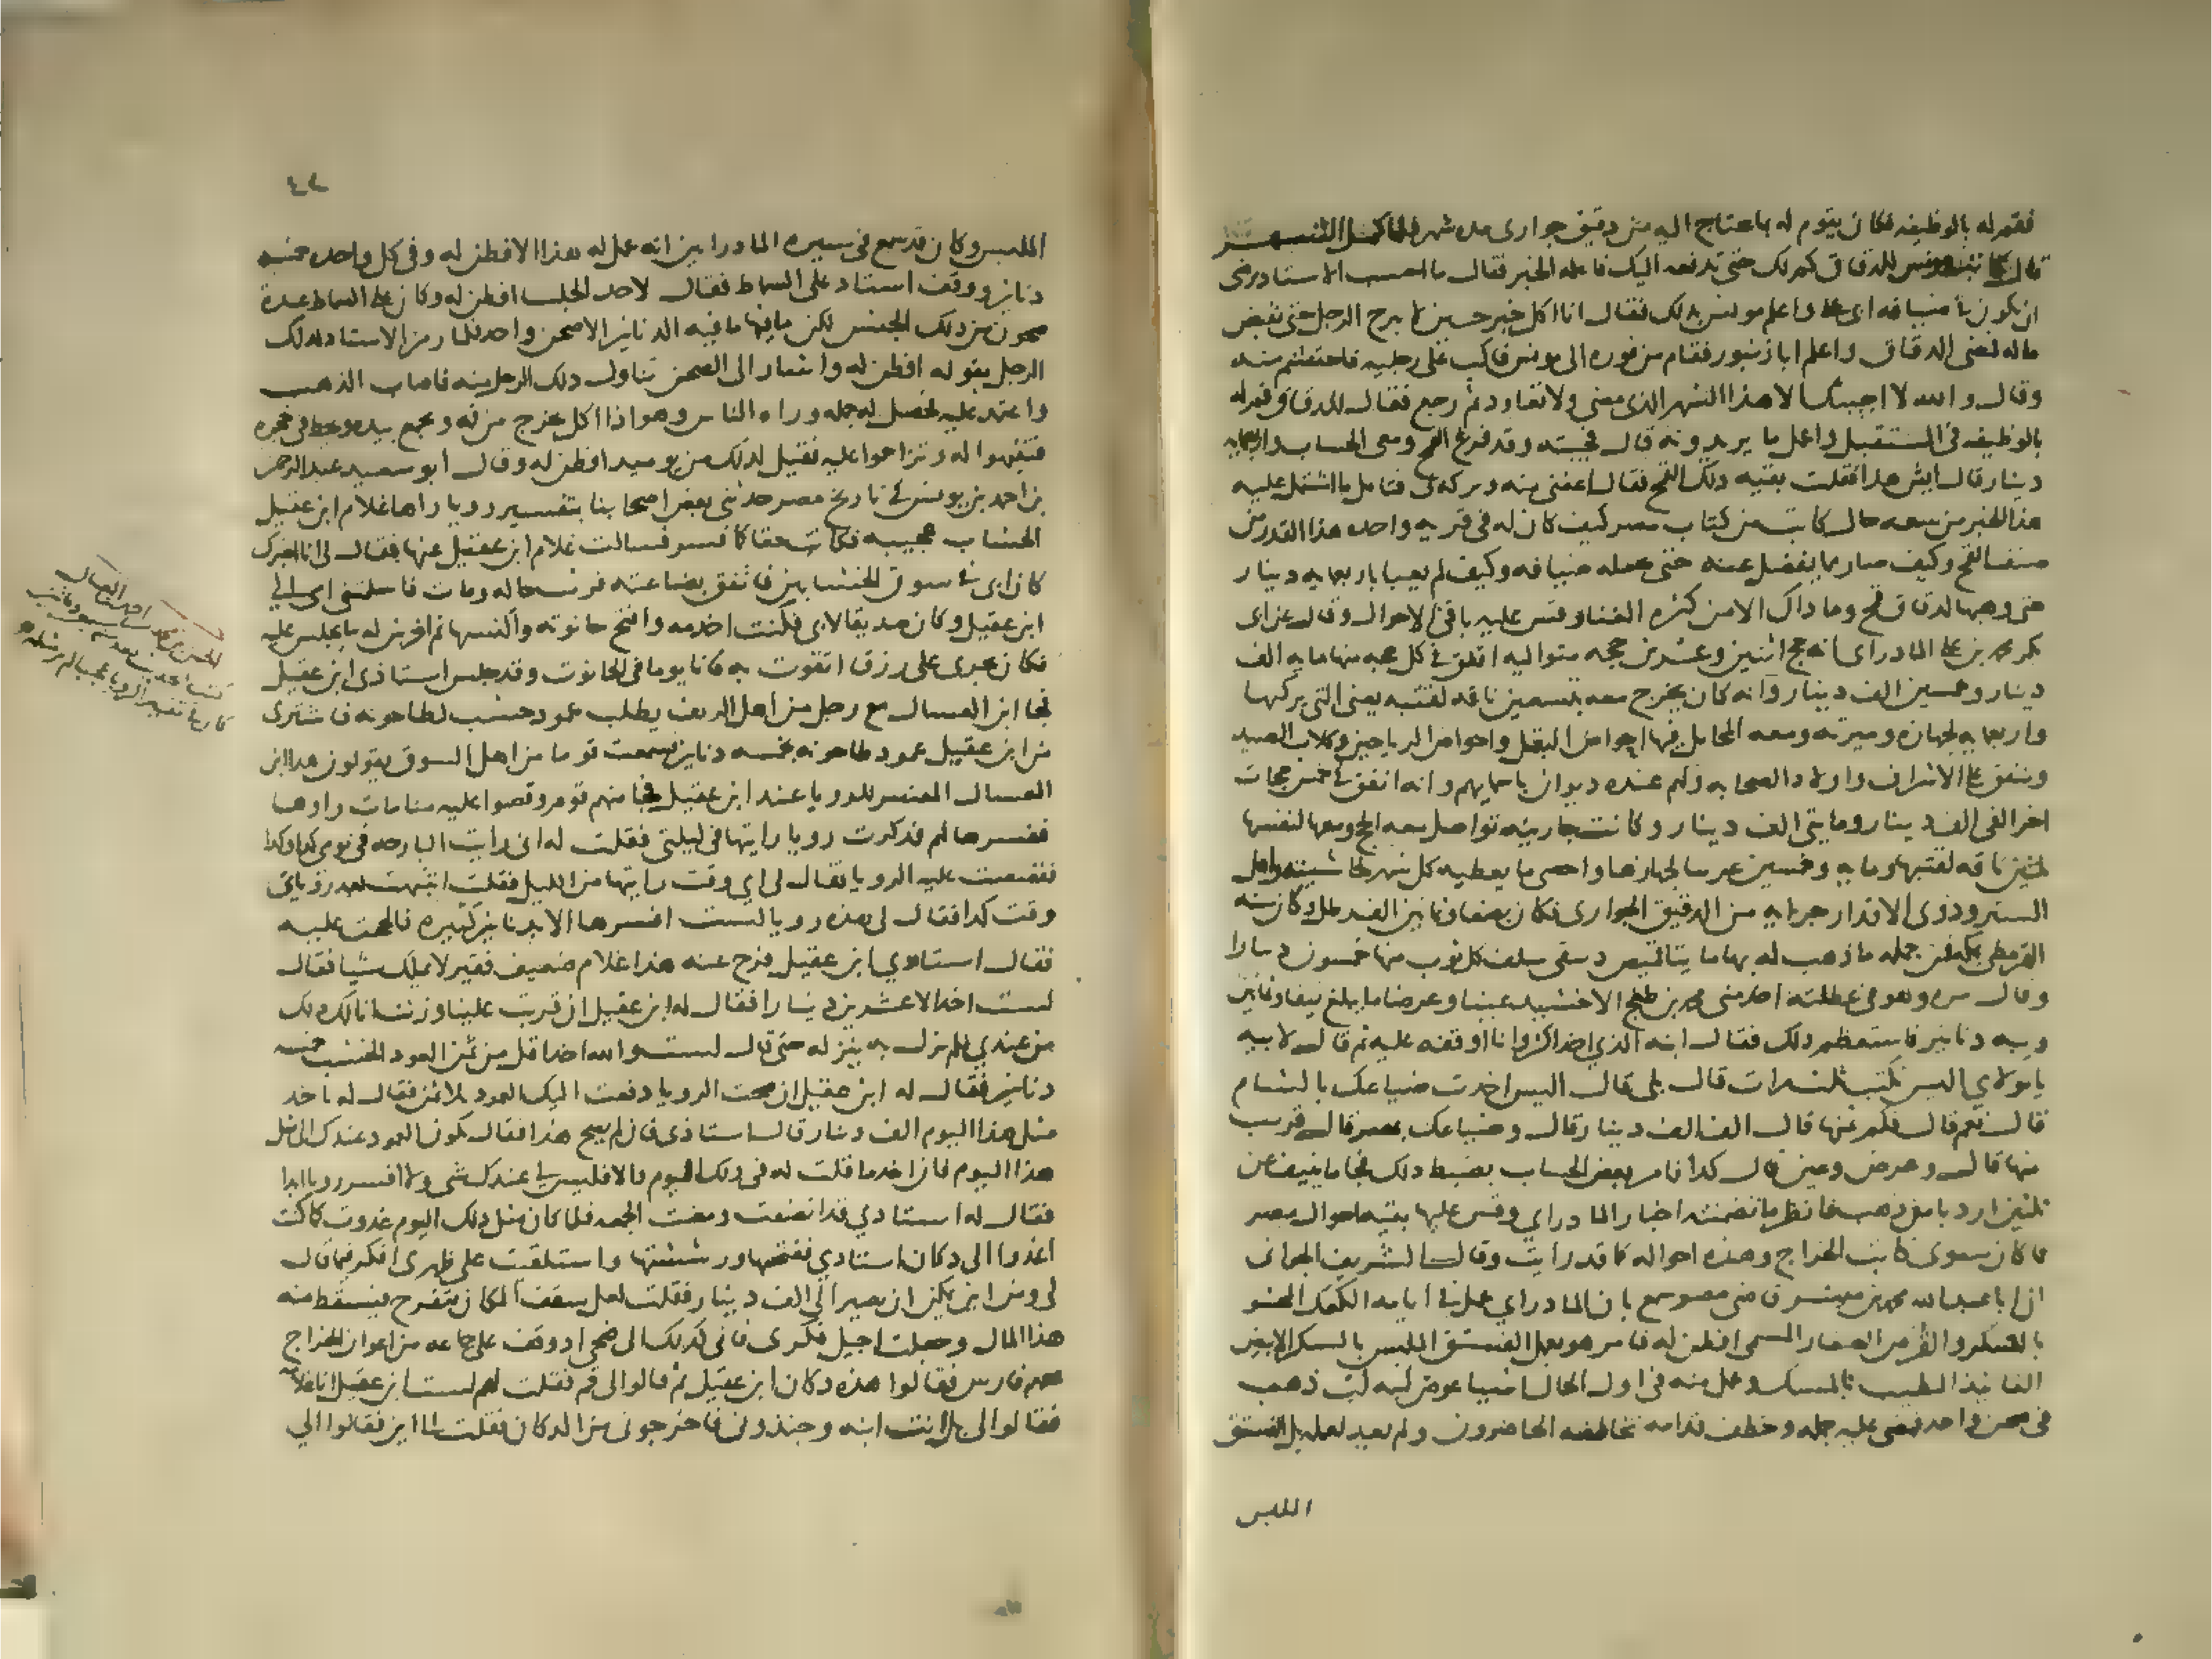 فقم له بالوظيفه فكان يقوم له بما يحتاج اليه من دقيق جوارى مده شهر فلما كمل الشهر
قال كاتب مونس للدقاق كم لك حتى ندفعه اليك فاعلمه الخبر فقال ما احسب الاستاد يرضى
ان يكون في ضيافه ابى على واعلم مونس بذلك فقال انا اكل خبز حسين لا يبرح الرجل حتى يقبض
ماله فمضى الدقاق واعلم ابا زنبور فقام من فوره الى مونس فاكب على رجليه فاحتشم منه
وقال والله لا اجيبك الا هذا الشهر الذى مضى ولا تعاود ثم رجع فقال للدقاق قم له
بالوظيفه في المستقبل واعمل ما يريدونه قال فجيته وقد فرغ القمح ومعى الحساب واربعمايه
دينار قال ايش هذا فقلت بقيه ذلك القمح فقال اعفنى منه وتركه لى فتامل ما اشتمل عليه
هذا الخبر من سعه حال كاتب من كتاب مصر كيف كان له فى قريه واحده هذا القدر من
صنف القمح وكيف صار مما يفضل عنه حتى يجعله ضيافه وكيف لم يعبا باربعمايه دينار
حتى وهبها لدقاق قمح وما ذاك الا من كثره الغنا وقس عليه باقى الاحوال وقال عن ابى
بكر محمد بن على المادراى انه حج اثنين وعشرين حجه متواليه انفق في كل حجه منها مايه الف
دينار وخمسين الف دينار وانه كان يخرج معه بتسعين ناقه لقبته يعنى التى يركبها
واربعمايه لجهازه وميرته ومعه المحامل فيها احواض البقل واحواض الرياحين وكلاب الصيد
وينفق على الاشراف واولاد الصحابه ولهم عنده ديوان باسمايهم وانه انفق في خمس حجات
اخر الفى الف دينار ومايتى الف دينار وكانت جاريته تواصل معه الحج ومعها لنفسها
ثلثين ناقه لقبتها ومايه وخمسين عربيا لجهازها واحصى ما يعطيه كل شهر لحاشيته واهل
الستر وذوى الاقدار جرايه من الدقيق الجوارى فكان بضعا وثمانين الف رطل وكان سنه
القرمطى بمكه فمن جمله ما ذهب له بها مايتا قميص دبيقى ثمن كل ثوب منها خمسون دينارا
وقال مره وهو فى عطلته اخذ منى محمد بن طغج الاخشيد عينا وعرضا ما يبلغ نيفا وثمانين
ويبه دنانير فاستعظم ذلك فقال ابنه الذي اخذ اكثر وانا اوقفه عليه ثم قال لابيه
يا مولاي اليس نكبت ثلث مرات قال بلى قال اليس اخذت ضياعك بالشام
قال نعم قال فكم ثمنها قال الف الف دينار قال وضياعك بمصر قال قريب
منها قال وعرض وعين قال كذا فامر بعض الحساب بضبط ذلك فجا ما ينيف عن
ثلثين اردبا من ذهب فانظر ما تضمنته اخبار المادراي وقس عليها بقيه احوال مصر
فما كان سوى كاتب الخراج وهذه احواله كما قد رايت وقال الشريف الجوانى
ان ابا عبد الله محمد بن مفسر قاضى مصر سمع بان المادراي عمل في ايامه الكعك المحشو
بالسكر والقرص الصغار المسمى افطن له فامر هو بعمل الفستق الملبس بالسكر الابيض
الفانيذ المطيب بالمسك وعمل منه فى اول الحال شيئا عوض لبه لب ذهب
فى صحن واحد فمضى عليه جمله وخطف قدامه تخاطفه الحاضرون ولم يعد لعمله بل الفستق
الملبس
٤٧
الملبس وكان قد سمع في سيره المادراين انه عمل له هذا الافطن له وفى كل واحده خمسه
دنانير ووقف استاد على السماط فقال لاحد الجلسا افطن له وكان على السماط عدة
صحون من ذلك الجنس لكن ما فيها ما فيه الدنانير الا صحن واحد فلما رمز الاستاد لذلك
الرجل بقوله افطن له واشار الى الصحن تناول ذلك الرجل منه فاصاب الذهب
واعتمد عليه فحصل له جمله وراه الناس وهو اذا اكل يخرج من فمه ويجمع بيده ويحط فى حجره
فتنبهوا له وتزاحموا عليه فقيل لذلك من يوميد افطن له وقال ابو سعيد عبد الرحمن
بن احمد بن يونس في تاريخ مصر حدثنى بعض اصحابنا بتفسير رويا راها غلام ابن عقيل
الخشاب عجيبه فكانت حقا كما فسرت فسالت غلام ابن عقيل عنها فقال لى انا اخبرك
كان ابى في سوق الخشابين فانفق بضاعته فرثت حاله ومات فاسلمتنى امى الى
ابن عقيل وكان صديقا لابى فكنت اخدمه وافتح حانوته واكنسها ثم افرش له ما يجلس عليه
فكان يجرى على رزق اتقوت به فانا يوما فى الحانوت وقد جلس استاذى ابن عقيل
فجا ابن العسال مع رجل من اهل الريف يطلب عمود خشب لطاحونه فاشترى
من ابن عقيل عمود طاحونه بخمسه دنانير فسمعت قوما من اهل السوق يقولون هذا ابن
العسال المفسر للرويا عند ابن عقيل فجا منهم قوم وقصوا عليه منامات راوها
ففسرها لهم فذكرت رويا رايتها فى ليلتى فقلت له انى رايت البارحه فى نومى كذا وكذا
فقصصت عليه الرويا فقال لى اي وقت رايتها من الليل فقلت انتبهت بعد روياي
وقت كذا فقال لى هذه رويا لست افسرها الا بدنانير كثيره فالححت عليه
فقال استادي ابن عقيل فرج عنه هذا غلام ضعيف فقير لا يملك شيا فقال
لست اخذ الا عشرين دينارا فقال له ابن عقيل ان قربت علينا وزنت انا لك ذلك
من عندي فلم يزل به ينزله حتى قال لست والله اخذ اقل من ثمن العود الخشب خمسه
دنانير فقال له ابن عقيل ان صحت الرويا دفعت اليك العمود بلا ثمن فقال له ياخذ
مثل هذا اليوم الف دينار قال استاذى فان لم يصح هذا فقال يكون العمود عندك الى مثل
هذا اليوم فان اخذ ما قلت له فى ذلك اليوم والا فليس لى عندك شى ولا افسر رويا ابدا
فقال له استادي قد انصفت ومضت الجمعه فلما كان مثل ذلك اليوم غدوت كما كنت
اغدوا الى دكان استادي ففتحتها ورششتها واستلقيت على ظهرى افكر فيما قال
لى ومن اين يمكن ان يصير الى الف دينار فقلت لعل سقف المكان ينفرج فيسقط منه
هذا المال وجعلت اجيل فكرى فانى كذلك الى ضحى اذ وقف على جماعه من اعوان الخراج
معهم فارس فقالوا هذه دكان ابن عقيل ثم قالوا لى قم فقلت لهم لست ابن عقيل انا غلامه
فقالوا لى بل انت ابنه وجبذونى فاخرجونى من الدكان فقلت الى اين فقالوا الي